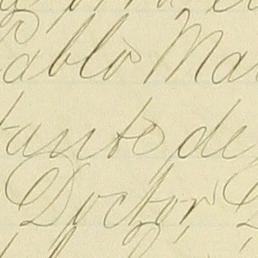 Pablo Mar
tanto de
Doctor, D